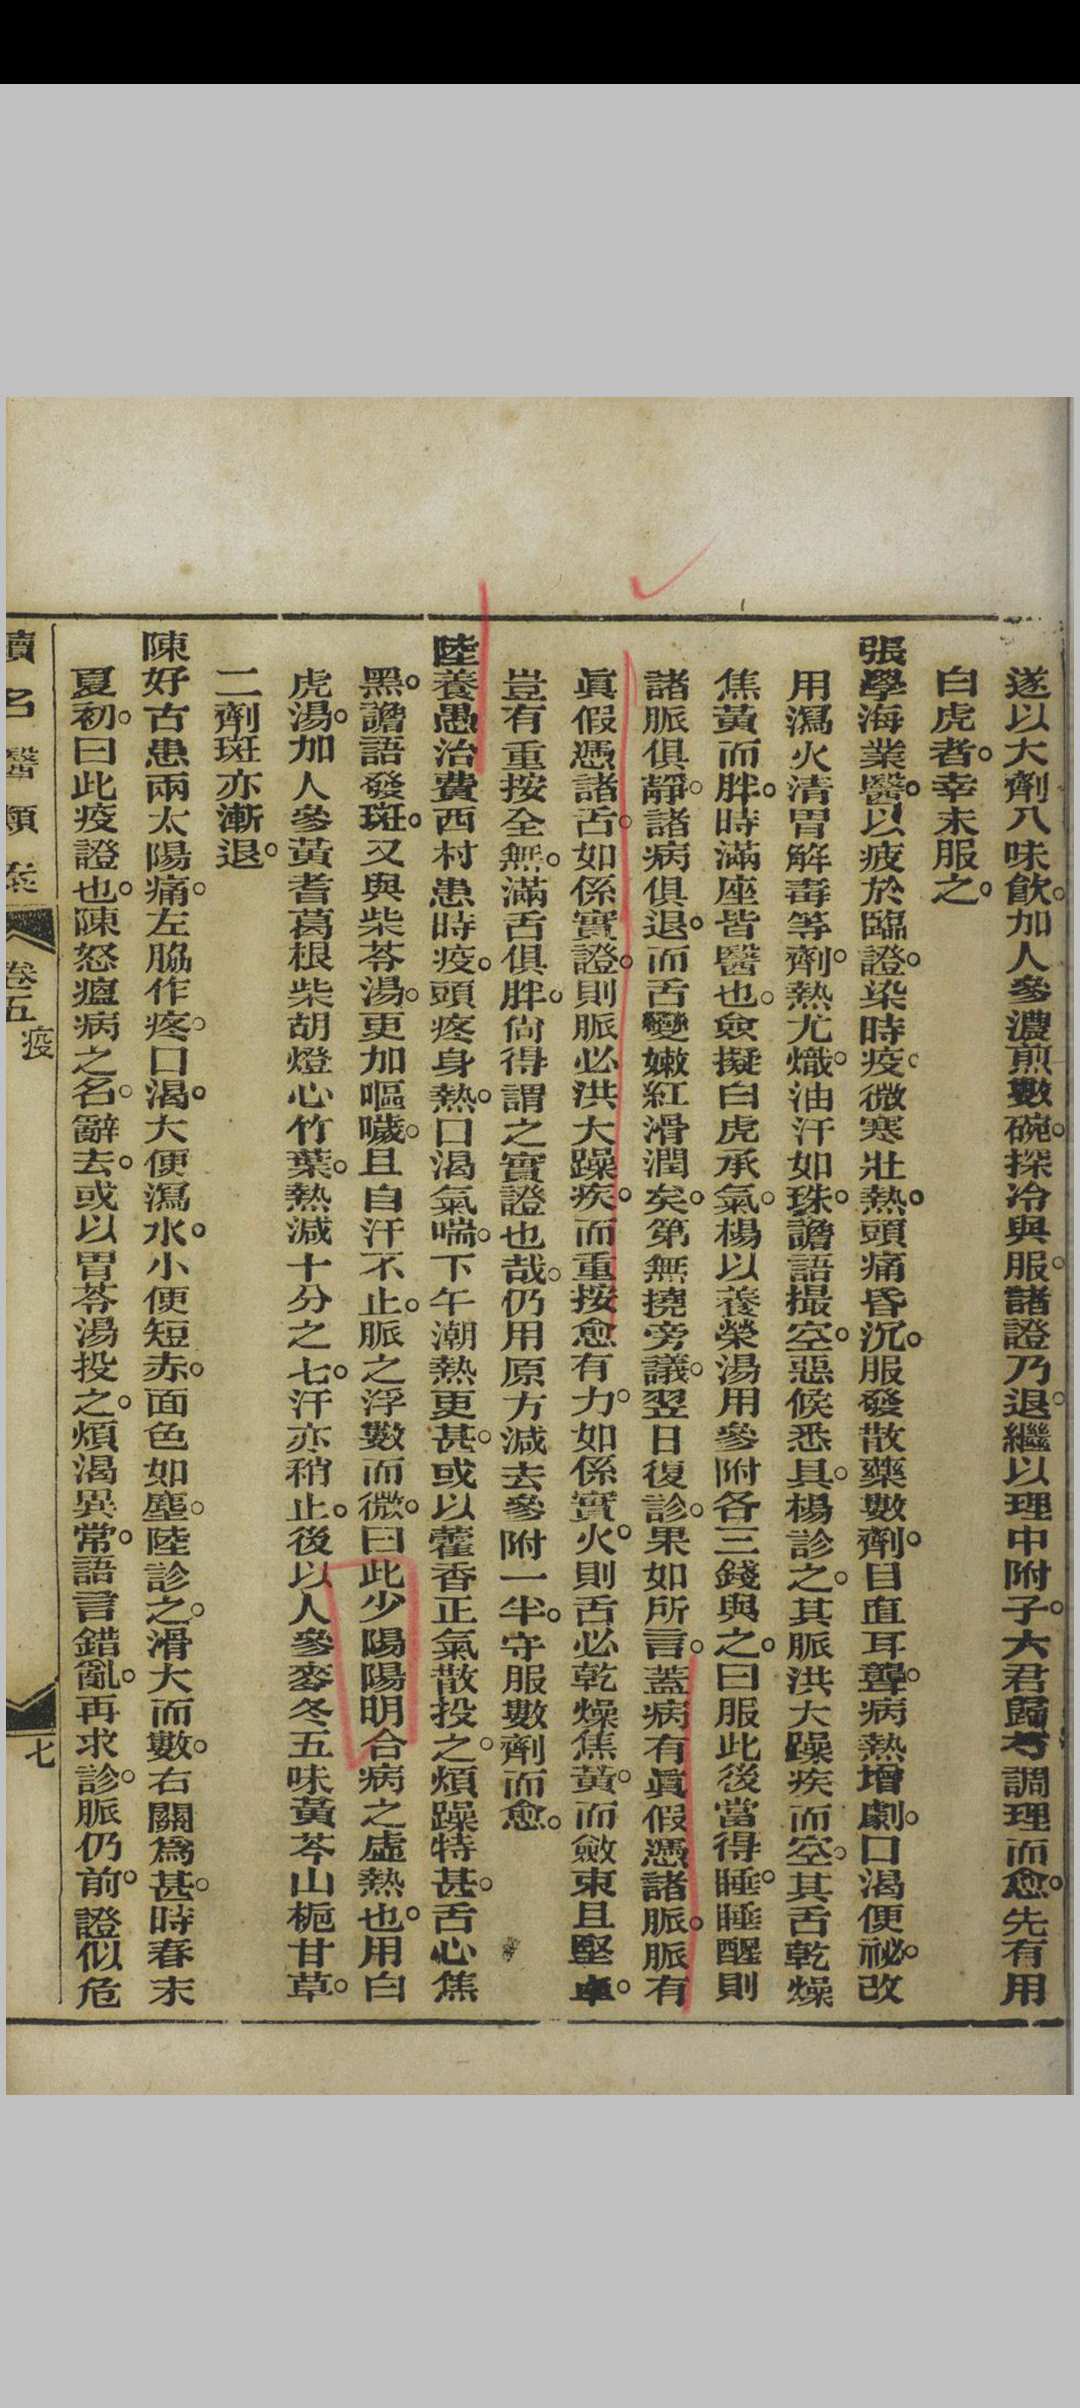 遂以大劑八味飲。加人參濃煎數碗。探冷與服。諸證乃退。繼以理中附子。六君歸芍調理而愈。先有用
白虎者。幸未服之。
張學海業醫。以疲於臨證。染時疫。微寒壯熱。頭痛昏沉。服發散藥數劑。目直耳聾。病熱增劇。口渴便祕。改
用瀉火清胃解毒等劑。熱尤熾。油汗如珠。譫語撮空。惡候悉具。楊診之。其脈洪大躁疾而空。其舌乾燥
焦黃而胖。時滿座皆醫也。僉擬白虎承氣。楊以養榮湯用參附各三錢與之。曰服此後當得睡。睡醒則
諸脈俱靜。諸病俱退。而舌變嫩紅滑潤矣。第無撓旁議。翌日復診。果如所言。蓋病有眞假憑諸脈。脈有
眞假憑諸舌。如係實證。則脈必洪大躁疾。而重按愈有力。如係實火。則舌必乾燥焦黃。而斂束且堅卓。
豈有重按全無。滿舌俱胖。尙得謂之實證也哉。仍用原方減去參附一半。守服數劑而愈。
陸養愚治費西村患時疫。頭疼身熱。口渴氣喘。下午潮熱更甚。或以藿香正氣散投之。煩躁特甚。舌心焦
黑。譫語發斑。又與柴苓湯。更加嘔噦。且自汗不止。脈之浮數而微。曰此少陽陽明合病之虛熱也。用白
虎湯。加人參黃耆葛根柴胡燈心竹葉。熱減十分之七。汗亦稍止。後以人參麥冬五味黃芩山梔甘草。
二劑斑亦漸退。
陳好古患兩太陽痛。左脇作疼。口渴。大便瀉水。小便短赤。面色如塵。陸診之。滑大而數。右關爲甚。時春末
夏初。曰此疫證也。陳怒瘟病之名。辭去。或以胃苓湯投之。煩渴異常。語言錯亂。再求診。脈仍前。證似危
續名醫類案 卷五 疫 七